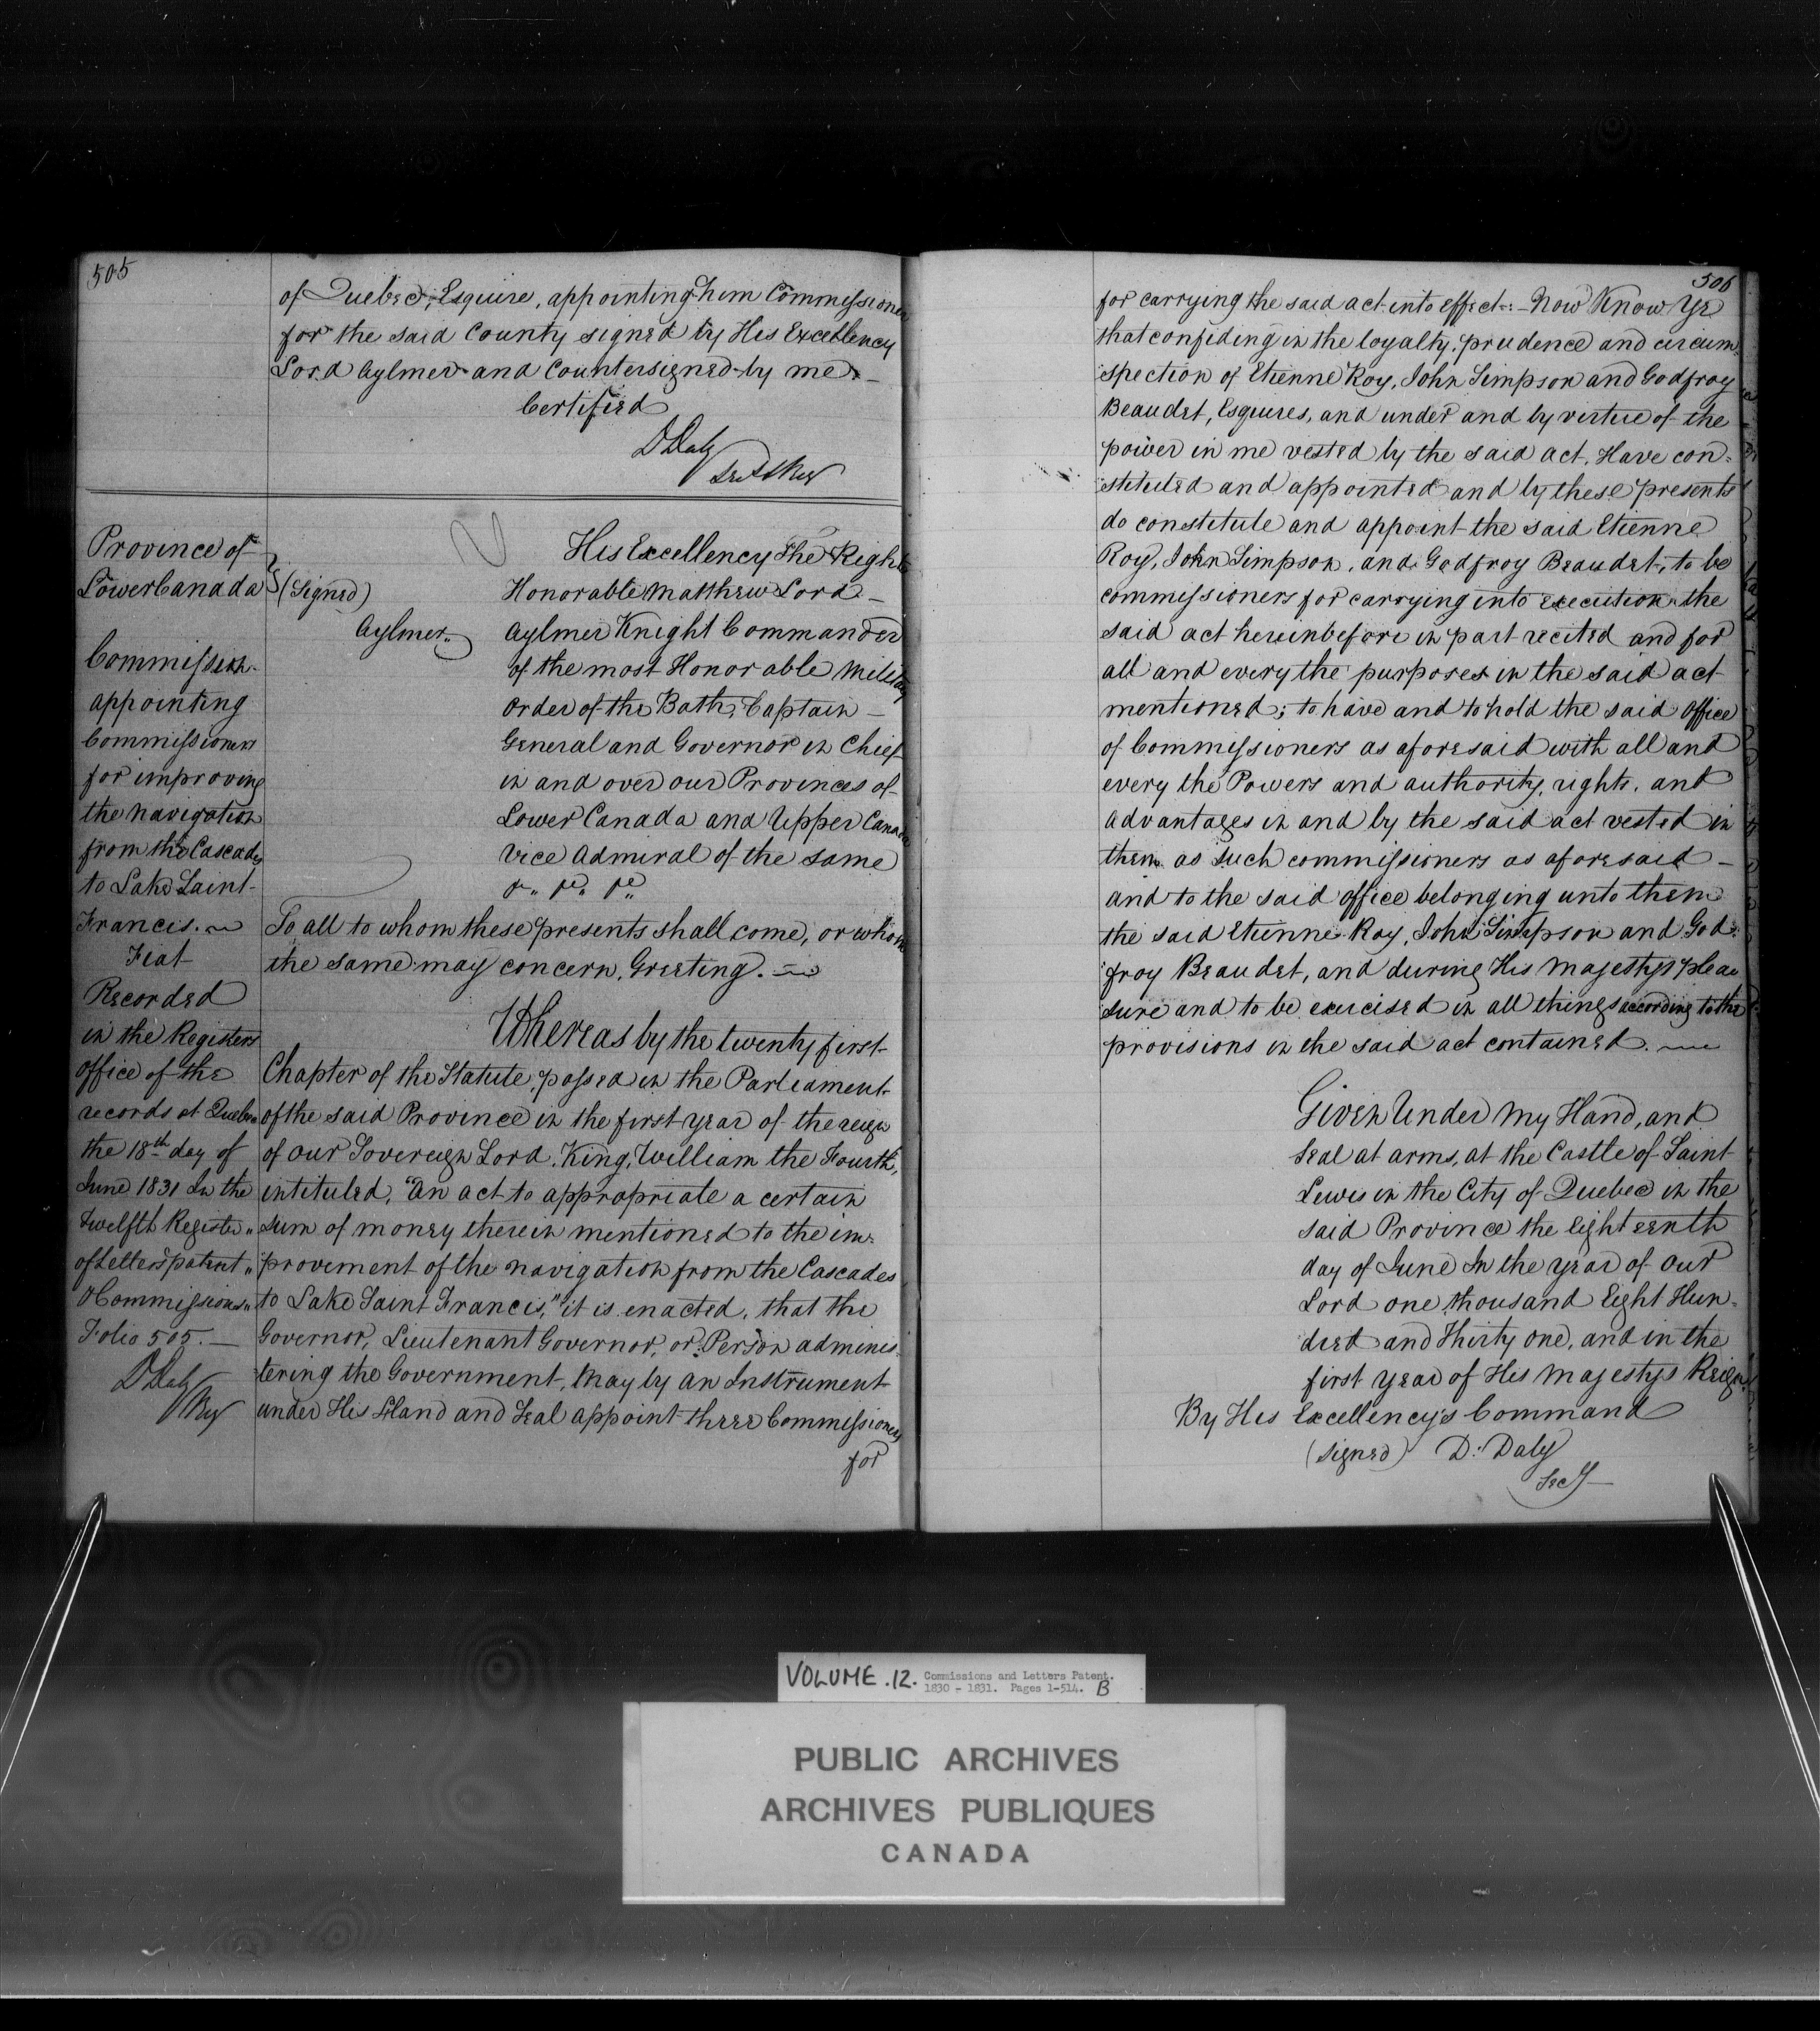 505
of Quebec, Esquire, appointing him Commissioner
for the said County signed by His Excellency
Lord Aylmer and Countersigned by me. —
Certified
D Daly
Province of
Lower Canada
Commission
appointing
Commissioners
for improving
the navigation
from the Cascades
to Lake Saint
Francis.
Fiat
Recorded
in the Registers
office of the
records at Quebec
the 18th day of
June 1831 In the
Twelfth Register
of Letters patent
& Commissions
Folio 505. —
D Daly
Reg
(Signed)
Aylmer.
His Excellency The Right
Honorable Matthew Lord —
Aylmer Knight Commander
of the most Honorable Military
Order of the Bath, Captain —
General and Governor in Chief
in and over our Provinces of
Lower Canada and Upper Canada
Vice Admiral of the same
&c. &c. &c.
To all to whom these presents shall come, or whom
the same may concern, Greeting.
Whereas by the twenty first
Chapter of the Statute, passed in the Parliament
of the said Province in the first year of the reign
of our Sovereign Lord, King, William the Fourth,
intituled, "An act to appropriate a certain
sum of money therein mentioned to the im-
provement of the navigation from the Cascades
to Lake Saint Francis," it is enacted, that the
Governor, Lieutenant Governor, or Person adminis-
tering the Government, may by an Instrument
under His Hand and Seal appoint three Commissioners
for
506
for carrying the said act into effect: — Now Know Ye
that confiding in the loyalty, prudence and circum-
spection of Etienne Roy, John Simpson and Godfroy
Beaudet, Esquires, and under and by virtue of the
power in me vested by the said act, Have con-
stituted and appointed and by these presents
do constitute and appoint the said Etienne
Roy, John Simpson, and Godfroy Beaudet, to be
commissioners for carrying into execution the
said act hereinbefore in part recited and for
all and every the purposes in the said act
mentioned; to have and to hold the said office
of Commissioners as aforesaid with all and
every the Powers and authority, rights, and
advantages in and by the said act vested in
them as such commissioners as aforesaid —
and to the said office belonging unto them
the said Etienne Roy, John Simpson and God-
froy Beaudet, and during His Majesty's plea
sure and to be exercised in all things according to the
provisions in the said act contained.
Given Under My Hand, and
Seal at arms, at the Castle of Saint
Lewis in the City of Quebec in the
said Province the Eighteenth
day of June In the year of our
Lord one thousand Eight Hun-
dred and Thirty one, and in the
first year of His Majestys Reign.
By His Excellency's Command
(signed) D. Daly
Secy
VOLUME .12. Commissions and Letters Patent.
1830 - 1831. Pages 1-514. B
PUBLIC ARCHIVES
ARCHIVES PUBLIQUES
CANADA